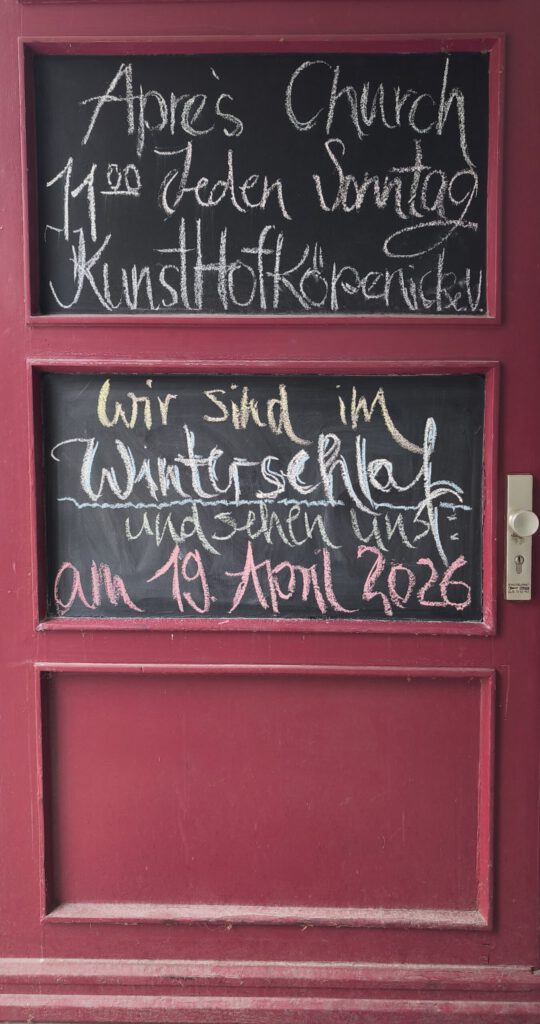 Apre's Church
11⁰⁰ Jeden Sonntag
KunstHofKöpenicke.V.
wir sind im
Winterschlaf
und sehen uns:
am 19. April 2026